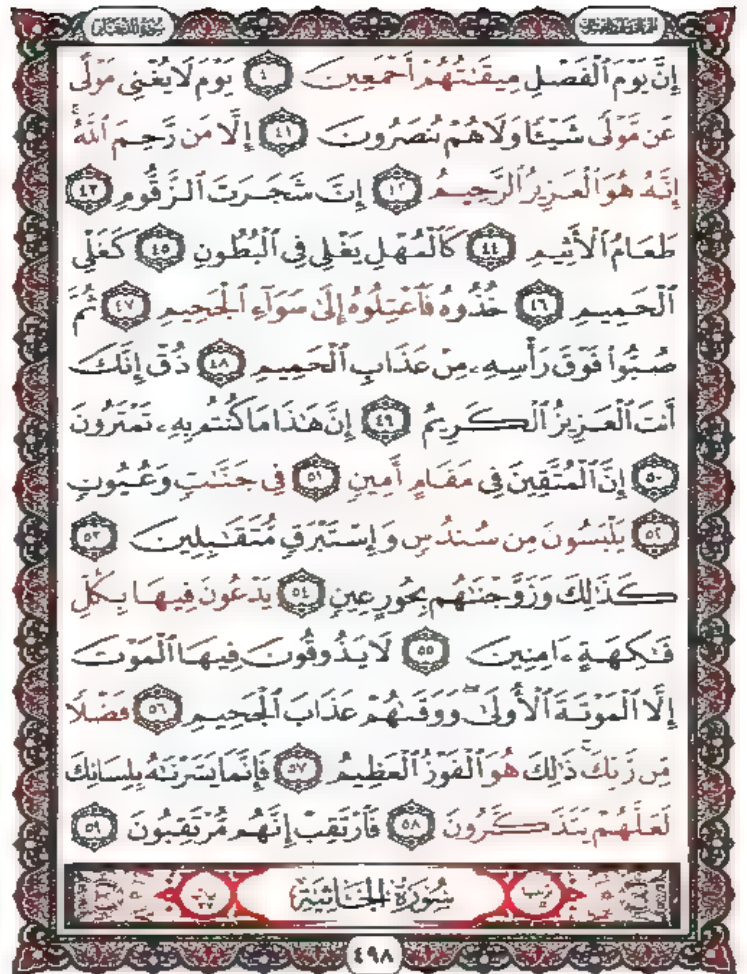 سُورَةُ الدُّخَانِ
إِنَّ يَوْمَ ٱلْفَصْلِ مِيقَٰتُهُمْ أَجْمَعِينَ ٤٠ يَوْمَ لَا يُغْنِى مَوْلًى
عَن مَّوْلًى شَيْـًٔا وَلَا هُمْ يُنصَرُونَ ٤١ إِلَّا مَن رَّحِمَ ٱللَّهُ ۚ
إِنَّهُۥ هُوَ ٱلْعَزِيزُ ٱلرَّحِيمُ ٤٢ إِنَّ شَجَرَتَ ٱلزَّقُّومِ ٤٣
طَعَامُ ٱلْأَثِيمِ ٤٤ كَٱلْمُهْلِ يَغْلِى فِى ٱلْبُطُونِ ٤٥ كَغَلْىِ
ٱلْحَمِيمِ ٤٦ خُذُوهُ فَٱعْتِلُوهُ إِلَىٰ سَوَآءِ ٱلْجَحِيمِ ٤٧ ثُمَّ
صُبُّوا۟ فَوْقَ رَأْسِهِۦ مِنْ عَذَابِ ٱلْحَمِيمِ ٤٨ ذُقْ إِنَّكَ
أَنتَ ٱلْعَزِيزُ ٱلْكَرِيمُ ٤٩ إِنَّ هَٰذَا مَا كُنتُم بِهِۦ تَمْتَرُونَ
٥٠ إِنَّ ٱلْمُتَّقِينَ فِى مَقَامٍ أَمِينٍ ٥١ فِى جَنَّٰتٍ وَعُيُونٍ
٥٢ يَلْبَسُونَ مِن سُندُسٍ وَإِسْتَبْرَقٍ مُّتَقَٰبِلِينَ ٥٣
كَذَٰلِكَ وَزَوَّجْنَٰهُم بِحُورٍ عِينٍ ٥٤ يَدْعُونَ فِيهَا بِكُلِّ
فَٰكِهَةٍ ءَامِنِينَ ٥٥ لَا يَذُوقُونَ فِيهَا ٱلْمَوْتَ
إِلَّا ٱلْمَوْتَةَ ٱلْأُولَىٰ ۖ وَوَقَىٰهُمْ عَذَابَ ٱلْجَحِيمِ ٥٦ فَضْلًا
مِّن رَّبِّكَ ۚ ذَٰلِكَ هُوَ ٱلْفَوْزُ ٱلْعَظِيمُ ٥٧ فَإِنَّمَا يَسَّرْنَٰهُ بِلِسَانِكَ
لَعَلَّهُمْ يَتَذَكَّرُونَ ٥٨ فَٱرْتَقِبْ إِنَّهُم مُّرْتَقِبُونَ ٥٩
سُورَةُ الْجَاثِيَةِ
٤٩٨